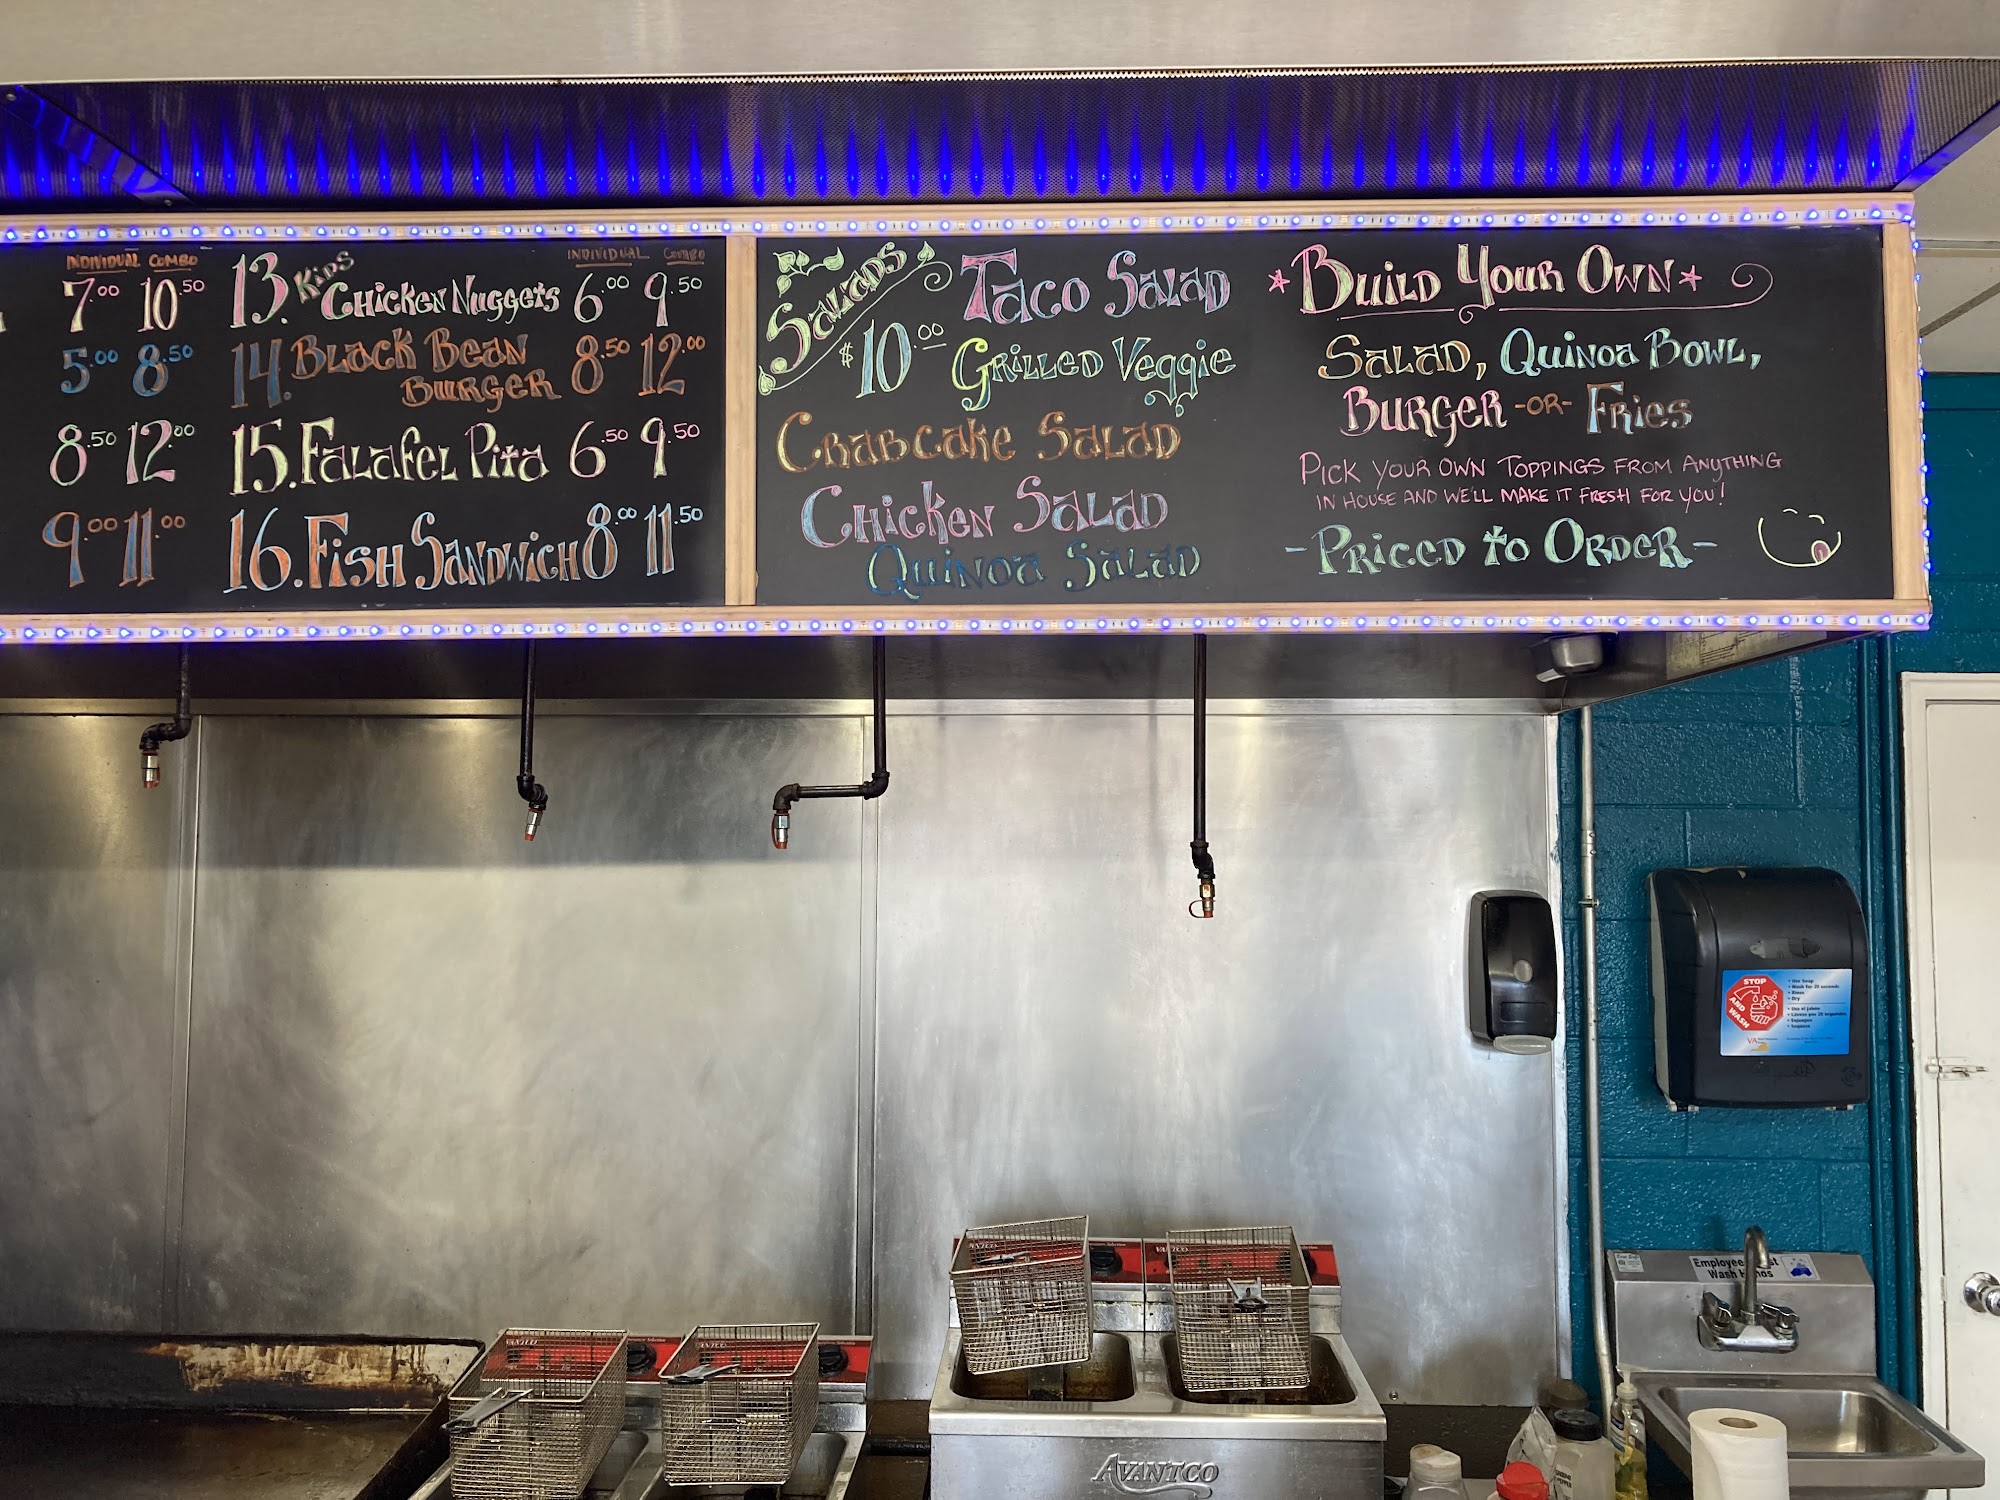 INDIVIDUAL COMBO
7.00 10.50
5.00 8.50
8.50 12.00
9.00 11.00
INDIVIDUAL COMBO
13. KIDS CHICKEN NUGGETS 6.00 9.50
14. BLACK BEAN BURGER 8.50 12.00
15. FALAFEL PITA 6.50 9.50
16. FISH SANDWICH 8.00 11.50
SALADS
$10.00
TACO SALAD
GRILLED VEGGIE
CRABCAKE SALAD
CHICKEN SALAD
QUINOA SALAD
BUILD YOUR OWN
SALAD, QUINOA BOWL,
BURGER -OR- FRIES
PICK YOUR OWN TOPPINGS FROM ANYTHING
IN HOUSE AND WE'LL MAKE IT FRESH FOR YOU!
- PRICED TO ORDER -
STOP
AND WASH
• Use Soap
• Wash for 20 seconds
• Rinse
• Dry
VA
Employees Must
Wash Hands
AVANTCO